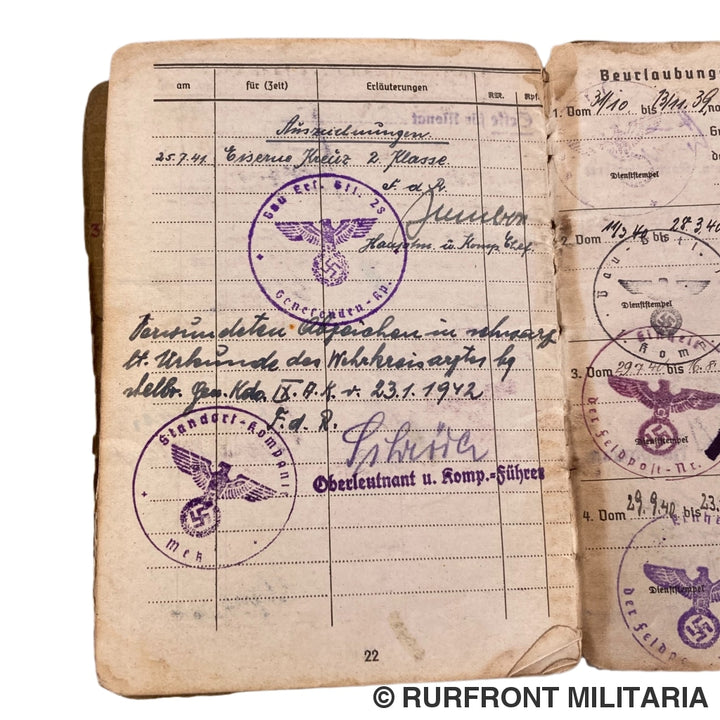 am für (Zeit) Erläuterungen RM. Rpf.
Auszeichnungen
25.7.41. Eiserne Kreuz 2. Klasse.
F. d. R.
Hauptm. u. Komp. Chef.
Bau Ers. Btl. 28
Genesenden-Kp.
Verwundeten Abzeichen in schwarz
lt. Urkunde des Wehrkreisarztes bg
stellv. Gen. Kdo. IX. A.K. v. 23.1.1942
F. d. R.
Oberleutnant u. Komp.-Führer
Standort-Kompanie
22
Beurlaubung
1. Vom 31/10 bis 13/11.39, no
Dienststempel
2. Vom 14/3 40 bis 28.3.40
Bau Btl.
Dienststempel
Komp
3. Vom 29.7.40 bis 16.8.
Einheit
der Feldpost-Nr.
Dienststempel
4. Vom 29.9.40 bis 23.
Einhe
Dienststempel
der Feldpo
© RURFRONT MILITARIA